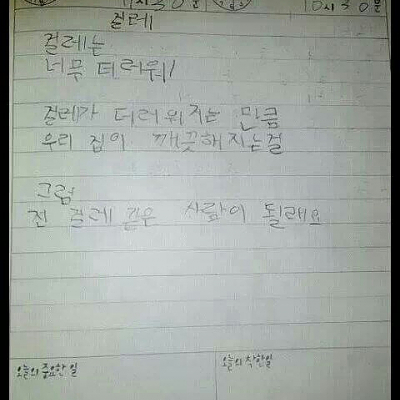 11시30분 10시30분
걸레
걸레는
너무 더러워!
걸레가 더러워지는 만큼
우리 집이 깨끗해지는걸
그럼
전 걸레 같은 사람이 될래요
오늘의 중요한 일 오늘의 착한일